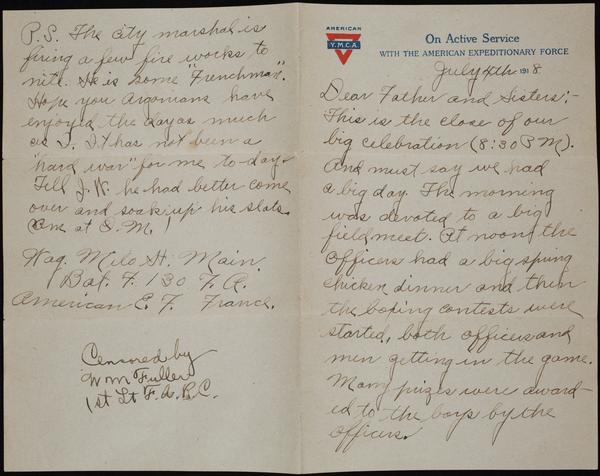 P.S. The city marshal is
firing a few fire works to
nite. He is some "Frenchman".
Hope you Argonians have
enjoyed the day as much
as I. It has not been a
"hard war" for me to-day.
Tell J.W. he had better come
over and soak up his slats.
am at S.M.!
Wag. Milo H. Main.
Bat. F. 130 F.A.
American E.F. France.
Censored by
Wm Fuller
1st Lt F.A.R.C.
AMERICAN
Y.M.C.A.
On Active Service
WITH THE AMERICAN EXPEDITIONARY FORCE
July 4th 1918
Dear Father and Sisters:-
This is the close of our
big celebration (8:30 P.M.).
And must say we had
a big day. The morning
was devoted to a big
field meet. At noon, the
officers had a big spring
chicken dinner and then
the boxing contests were
started, both officers and
men getting in the game.
Many prizes were award-
ed to the boys by the
officers.